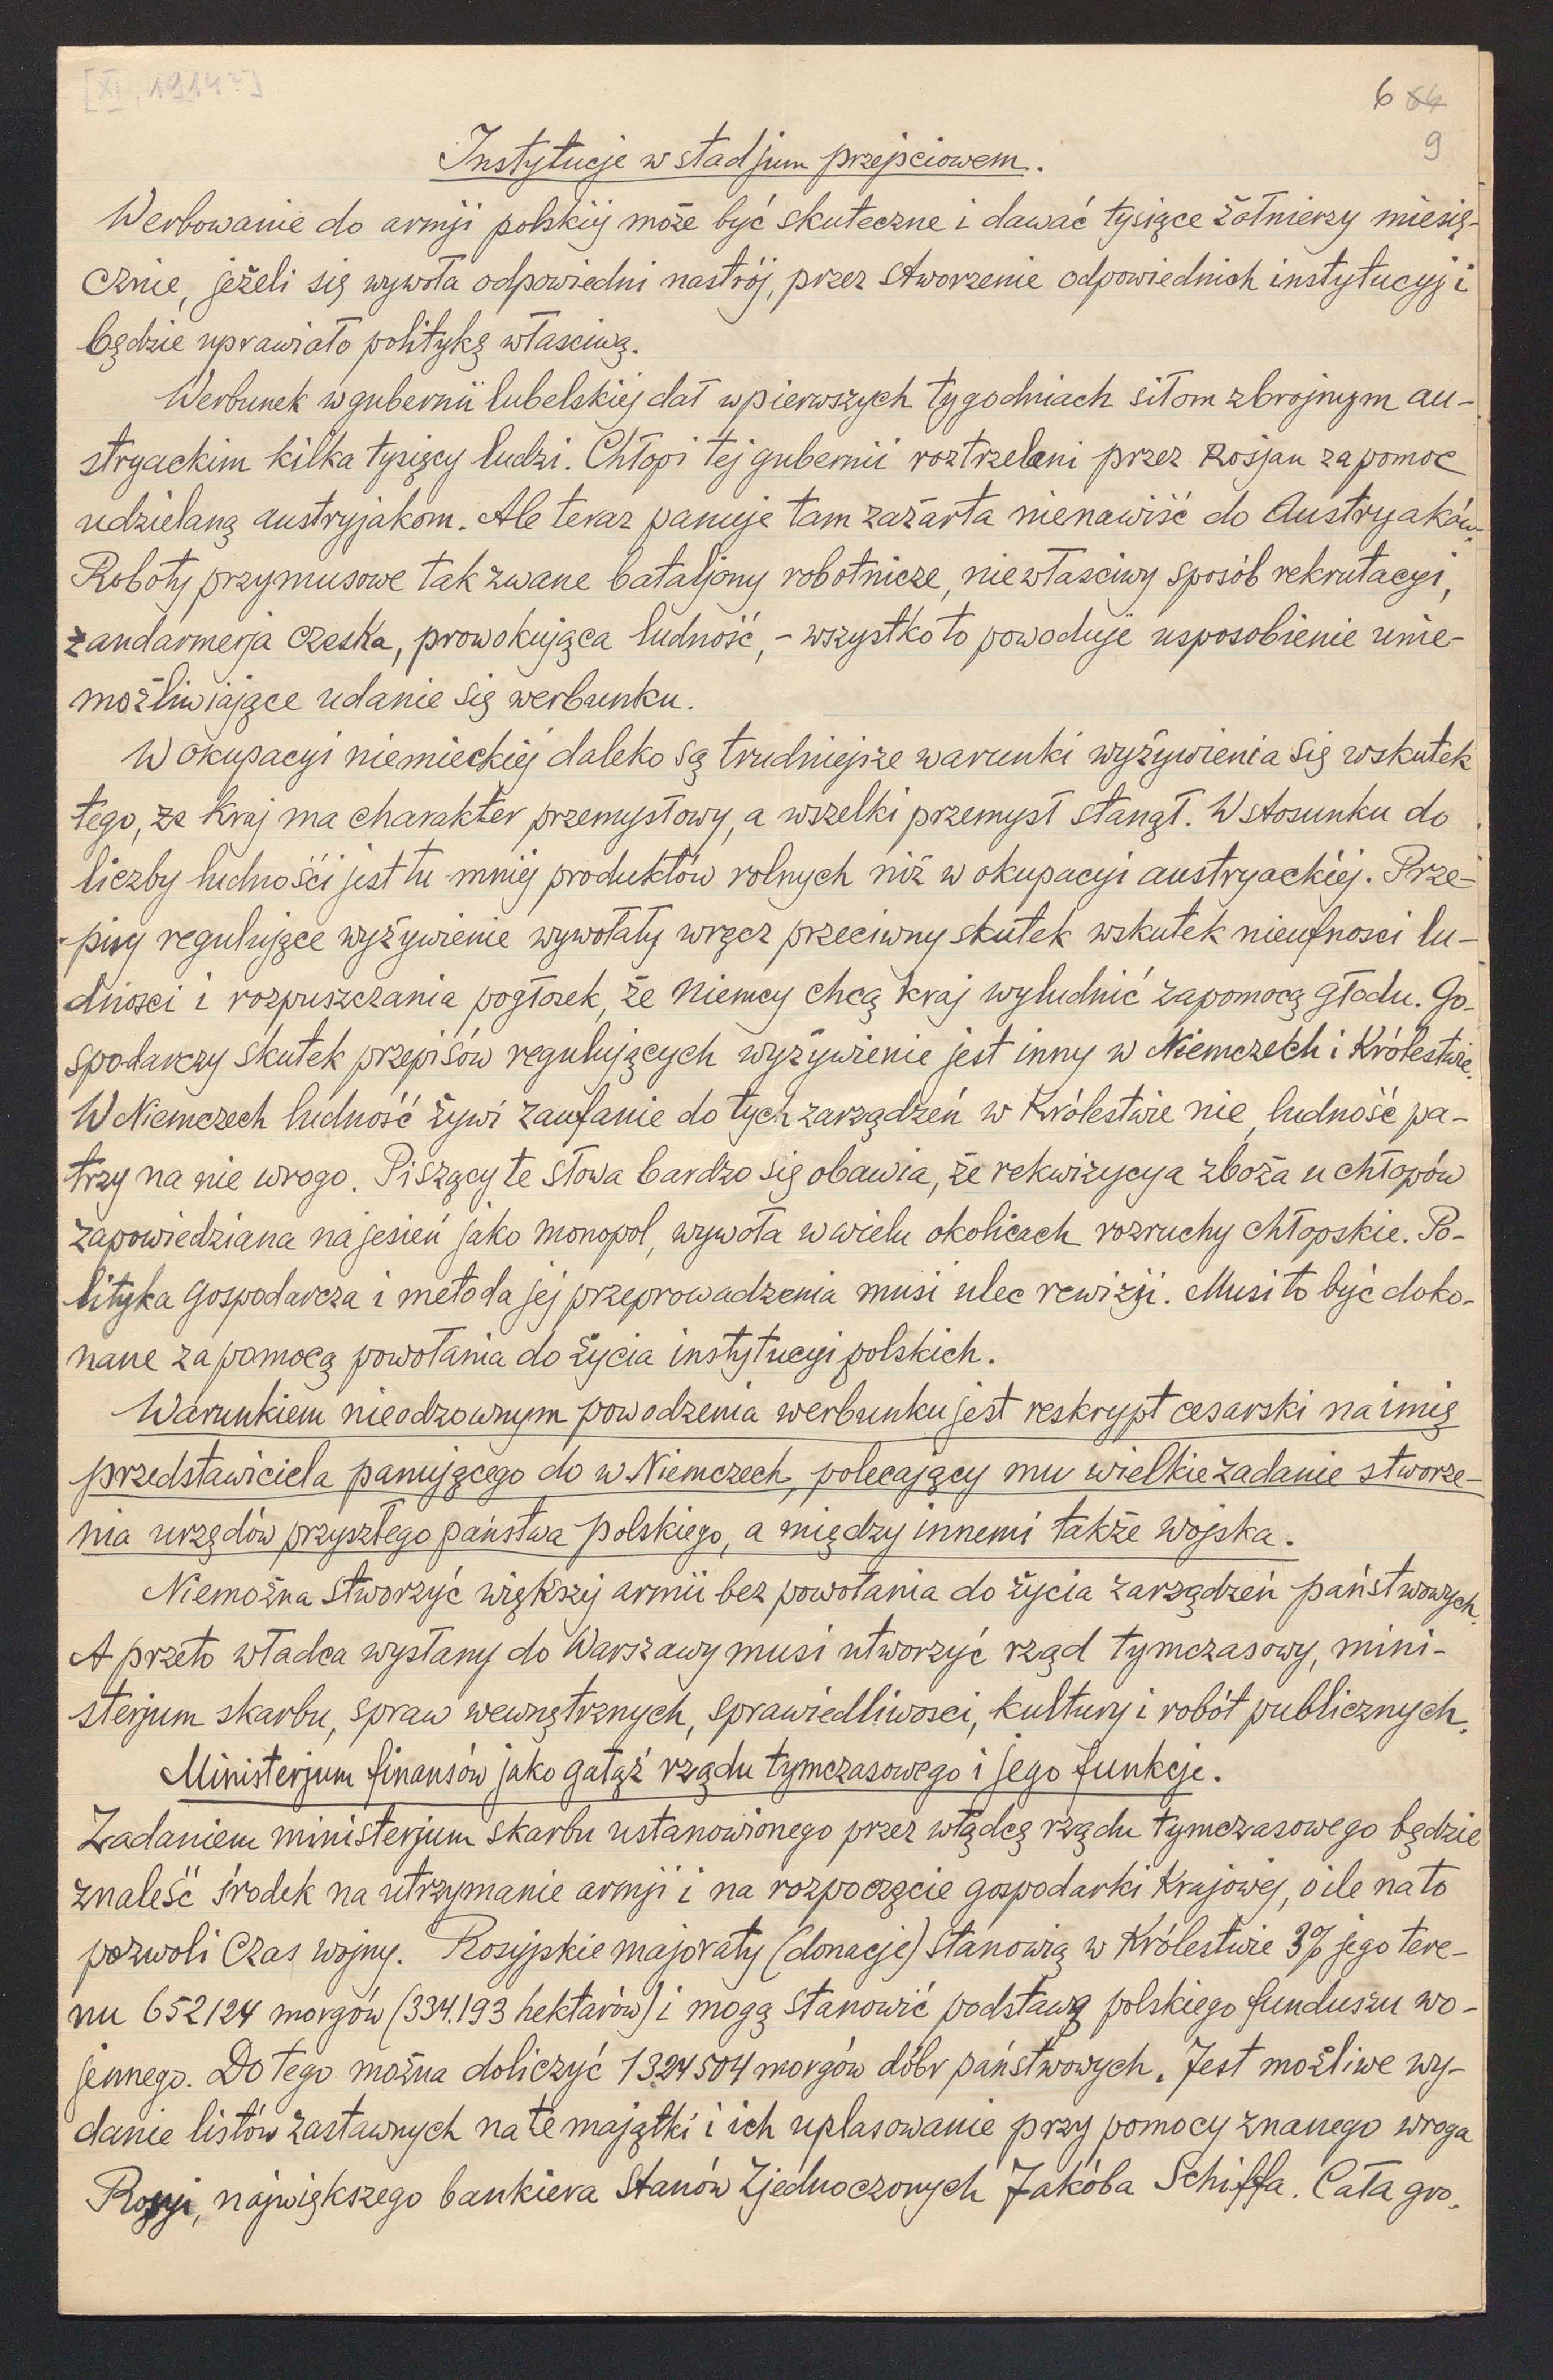 [XI, 1914?]
6 64
9
Instytucje w stadjum przejściowem.
Werbowanie do armji polskiej może być skuteczne i dawać tysiące żołnierzy miesię-
cznie, jeżeli się wywoła odpowiedni nastrój, przez stworzenie odpowiednich instytucyj i
będzie uprawiało politykę własciwą.
Werbunek w gubernii lubelskiej dał w pierwszych tygodniach siłom zbrojnym au-
stryackim kilka tysięcy ludzi. Chłopi tej gubernii roztrzelani przez Rosjan za pomoc
udzielaną austryjakom. Ale teraz panuje tam zażarta nienawiść do Austryaków.
Roboty przymusowe tak zwane bataljony robotnicze, niewłasciwy sposób rekrutacyi,
żandarmerja czeska, prowokująca ludność, - wszystko to powoduje usposobienie unie-
możliwiające udanie się werbunku.
W okupacyi niemieckiej daleko są trudniejsze warunki wyżywienia się wskutek
tego, że kraj ma charakter przemysłowy, a wszelki przemysł stanął. W stosunku do
liczby ludności jest tu mniej produktów rolnych niż w okupacyi austryackiej. Prze-
pisy regulujące wyżywienie wywołały wręcz przeciwny skutek wskutek nieufnosci lu-
dnosci i rozpuszczania pogłosek, że Niemcy chcą kraj wyludnić zapomocą głodu. Go-
spodarczy skutek przepisów regulujących wyżywienie jest inny w Niemczech i Królestwie.
W Niemczech ludność żywi zaufanie do tych zarządzeń w Królestwie nie, ludność pa-
trzy na nie wrogo. Piszący te słowa bardzo się obawia, że rekwizycya zboża u chłopów
zapowiedziana na jesień jako monopol, wywoła w wielu okolicach rozruchy chłopskie. Po-
lityka gospodarcza i metoda jej przeprowadzenia musi ulec rewizji. Musi to być doko-
nane za pomocą powołania do życia instytucyi polskich.
Warunkiem nieodzownym powodzenia werbunku jest reskrypt cesarski na imię
przedstawiciela panującego do w Niemczech, polecający mu wielkie zadanie stworze-
nia urzędów przyszłego państwa polskiego, a między innemi także wojska.
Niemożna stworzyć większej armii bez powołania do życia zarządzeń państwowych.
A przeto władca wysłany do Warszawy musi utworzyć rząd tymczasowy, mini-
sterjum skarbu, spraw wewnętrznych, sprawiedliwosci, kultury i robót publicznych.
Ministerjum finansów jako gałąź rządu tymczasowego i jego funkcje.
Zadaniem ministerjum skarbu ustanowionego przez włądcę rządu tymczasowego będzie
znaleść środek na utrzymanie armji i na rozpoczęcie gospodarki krajowej, o ile na to
pozwoli czas wojny. Rosyjskie majoraty (donacje) stanowią w Królestwie 3% jego tere-
nu 652124 morgów (334.193 hektarów) i mogą stanowić podstawą polskiego funduszu wo-
jennego. Do tego można doliczyć 1324504 morgów dóbr państwowych. Jest możliwe wy-
danie listów zastawnych na te majątki i ich uplasowanie przy pomocy znanego wroga
Rosyi, największego bankiera Stanów Zjednoczonych Jakóba Schiffa. Cała gro-